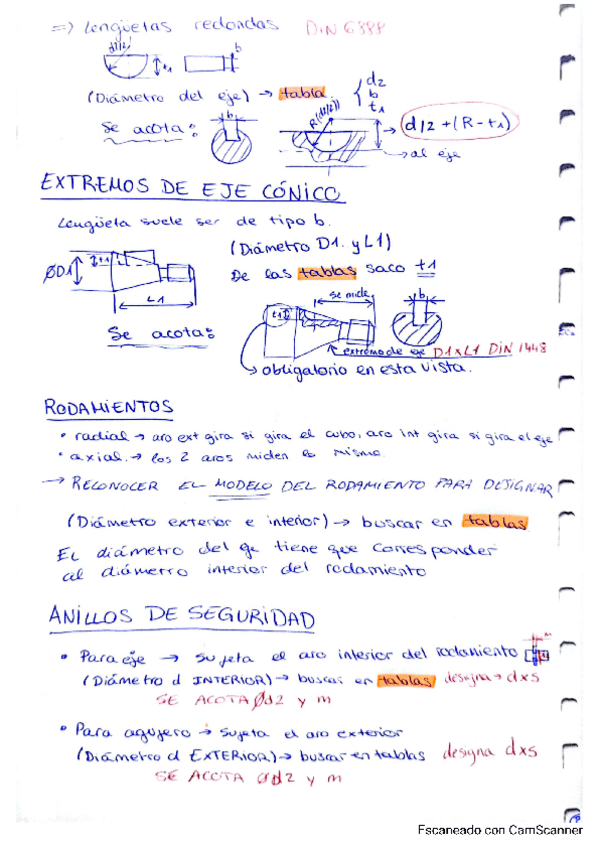 => lengüetas redondas DIN 6888
d1/2 t1 b
(Diámetro del eje) → tabla { d2
b
t1
Se acota: b R(d2/2) d/2 + (R - t1)
→ al eje
EXTREMOS DE EJE CÓNICO
Lengüeta suele ser de tipo b.
(Diámetro D1. y L1)
ØD1 t1 De las tablas saco t1
L1 se mide b
Se acota: t1
extremo de eje D1xL1 DIN 1448
→ obligatorio en esta vista.
RODAMIENTOS
• radial → aro ext gira si gira el cubo, aro int gira si gira el eje
• axial. → los 2 aros miden lo mismo.
→ RECONOCER EL MODELO DEL RODAMIENTO PARA DESIGNAR
(Diámetro exterior e interior) → buscar en tablas
El diámetro del eje tiene que corresponder
al diámetro interior del rodamiento
ANILLOS DE SEGURIDAD
• Para eje → sujeta el aro interior del rodamiento
(Diámetro d INTERIOR) → buscas en tablas designa → dxs
SE ACOTA Ød2 y m
• Para agujero → sujeta el aro exterior
(Diámetro d EXTERIOR) → buscar en tablas designa dxs
SE ACOTA Ød2 y m
Escaneado con CamScanner